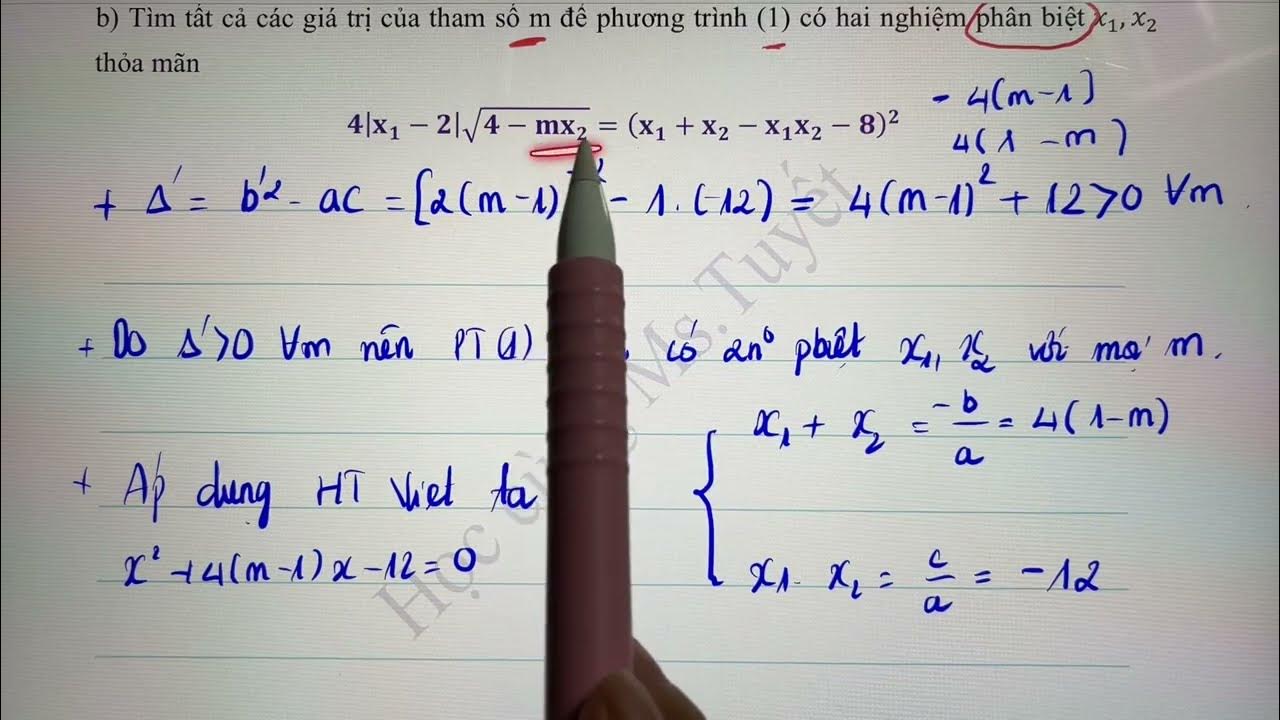 b) Tìm tất cả các giá trị của tham số m để phương trình (1) có hai nghiệm phân biệt x₁, x₂
thỏa mãn
4|x₁ − 2|√(4 − mx₂) = (x₁ + x₂ − x₁x₂ − 8)²
- 4(m-1)
4(1 -m)
+ Δ' = b'² - ac = [2(m-1)]² - 1.(-12) = 4(m-1)² + 12 > 0 ∀m
+ Do Δ'>0 ∀m nên PT(1) có 2n⁰ pbiệt x₁, x₂ với mọi m.
x₁ + x₂ = -b/a = 4(1-m)
+ Áp dụng HT Viet ta
x² + 4(m-1)x - 12 = 0
x₁. x₂ = c/a = -12
Học cùng Ms.Tuyết